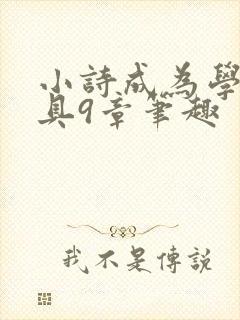 小詩成為學
具9章筆趣
我不是傳說